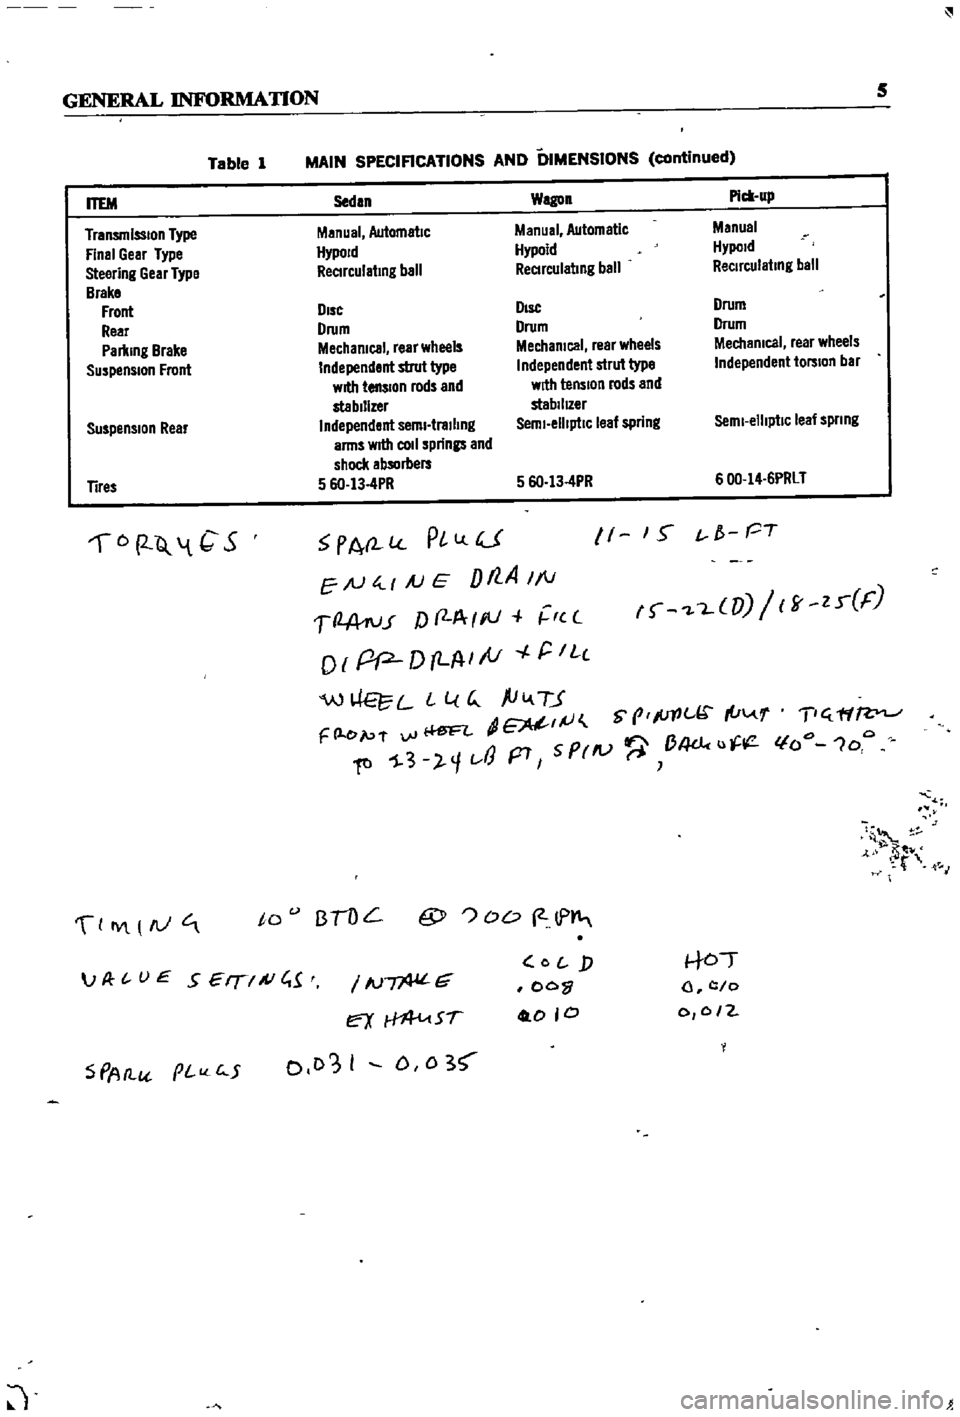 GENERAL INFORMATION 5
Table 1 MAIN SPECIFICATIONS AND DIMENSIONS (continued)
ITEM Sedan Wagon Pick-up
Transmission Type Manual, Automatic Manual, Automatic Manual
Final Gear Type Hypoid Hypoid Hypoid
Steering Gear Type Recirculating ball Recirculating ball Recirculating ball
Brake
Front Disc Disc Drum
Rear Drum Drum Drum
Parking Brake Mechanical, rear wheels Mechanical, rear wheels Mechanical, rear wheels
Suspension Front Independent strut type Independent strut type Independent torsion bar
with tension rods and with tension rods and
stabilizer stabilizer
Suspension Rear Independent semi-trailing Semi-elliptic leaf spring Semi-elliptic leaf spring
arms with coil springs and
shock absorbers
Tires 5 60-13-4PR 5 60-13-4PR 6 00-14-6PRLT
TORQUES: SPARK PLUGS 11-15 LB-FT
ENGINE DRAIN
TRANS DRAIN + FILL 15-22(D)/18-25(F)
DIFF DRAIN + FILL
WHEEL LUG NUTS
FRONT WHEEL BEARING SPINDLE NUT: TIGHTEN
TO 23-24 LB FT, SPIN, BACK OFF 40°-70°
TIMING 10° BTDC @ 700 RPM
COLD HOT
VALVE SETTINGS: INTAKE .008 0.010
EXHAUST 0.010 0.012
SPARK PLUGS 0.031 - 0.035
carmanualsonline.info